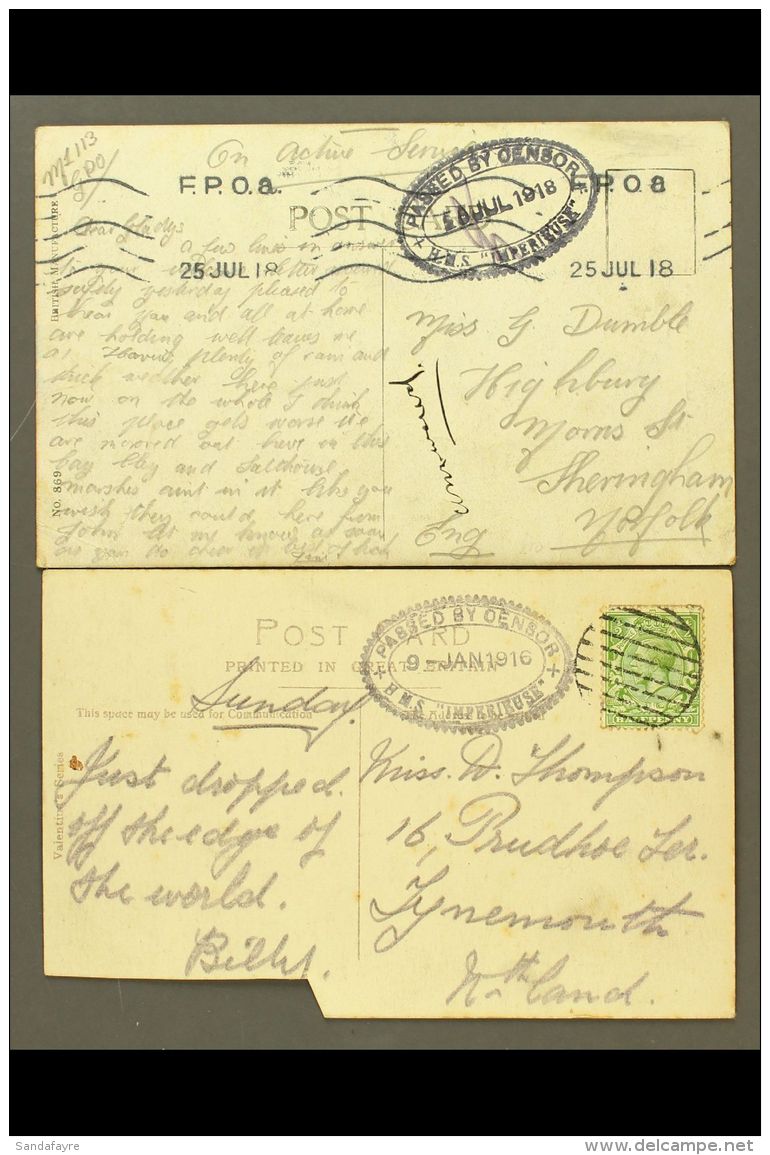 M1 113
GPO/
On Active Service
F.P.O.a.
F.P.O a
PASSED BY CENSOR
JUL 1918
H.M.S. "IMPERIEUSE"
POST CARD
25 JUL 18
25 JUL 18
BRITISH MANUFACTURE
No. 869
Dear Gladys
a few lines in answer
to your letter
safely yesterday pleased to
hear you and all at home
are holding well leaves me
Having plenty of rain and
thick weather here just
now on the whole I think
this place gets worse we
are moored out here in this
bay Cley and Salthouse
marshes aint in it
wish they could here from
John let me know as soon
as you do
Miss G. Dumble
Highbury
Morris St
Sheringham
Norfolk
Eng
POST CARD
PRINTED IN GREAT BRITAIN
PASSED BY CENSOR
9-JAN 1916
H.M.S. "IMPERIEUSE"
HALFPENNY
This space may be used for Communication
The Address to be
Valentine's Series
Sunday.
Just dropped
off the edge of
the world.
Miss. D. Thompson
16, Prudhoe Ter.
Tynemouth
Nth land.
Sandafayre
delcampe.net